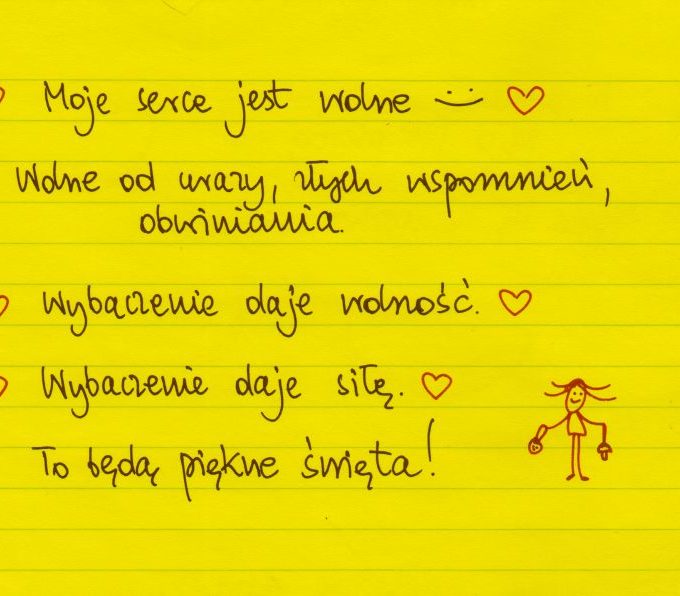 Moje serce jest wolne
Wolne od urazy, złych wspomnień,
obwiniania.
Wybaczenie daje wolność.
Wybaczenie daje siłę.
To będą piękne święta!